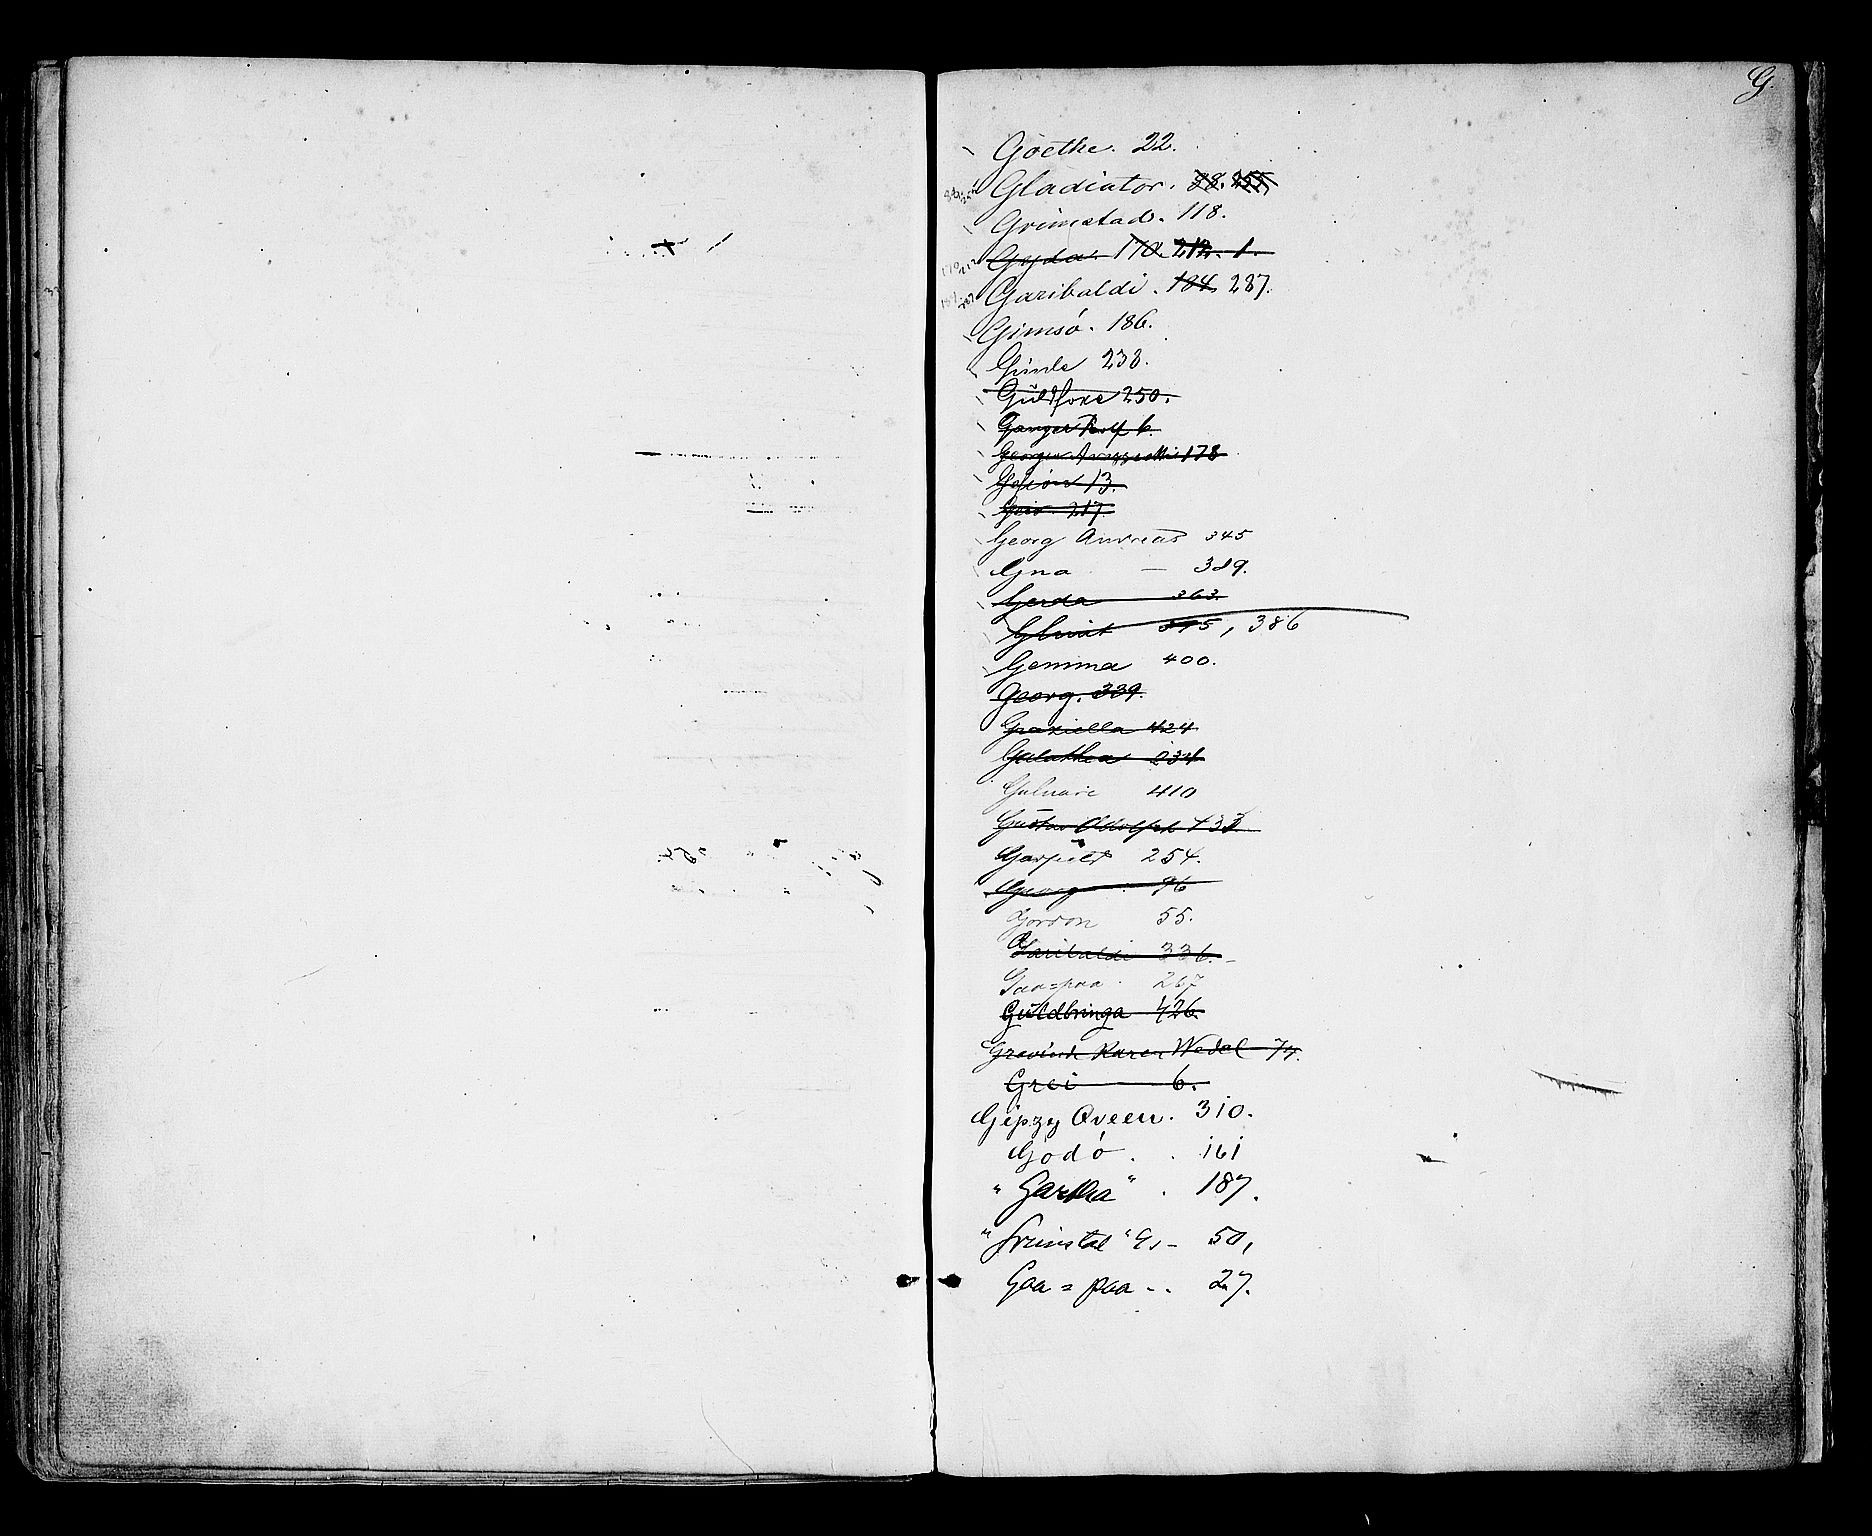 G.
Goethe. 22.
Gladiator. 88. 255.
Grimstad. 118.
Gyda. 170. 212. 1.
Garibaldi. 184. 287.
Gimsó. 186.
Gimle 238.
Guldfaxe 250.
Ganger Rolf 6.
178
Gefion 13.
Geir. 217.
Georg Andreas 345
Gna — 389.
Gerda 363.
Glimt 395, 386
Gemma 400.
Georg. 339.
Graziella 424
Galathea 234
Gulnare 410
Gustav Adolph 433
Garfield 254.
Georg 96
Gordon 55.
Garibaldi 336. –
Gaa=paa. 267
Guldbringa 426.
Karen Wedel 74.
Grei 6.
Gipzy Qveen. 310.
Godó. . 161
" Gartha " . 187.
" Grimstad " 50,
Gaa = paa . . 27.